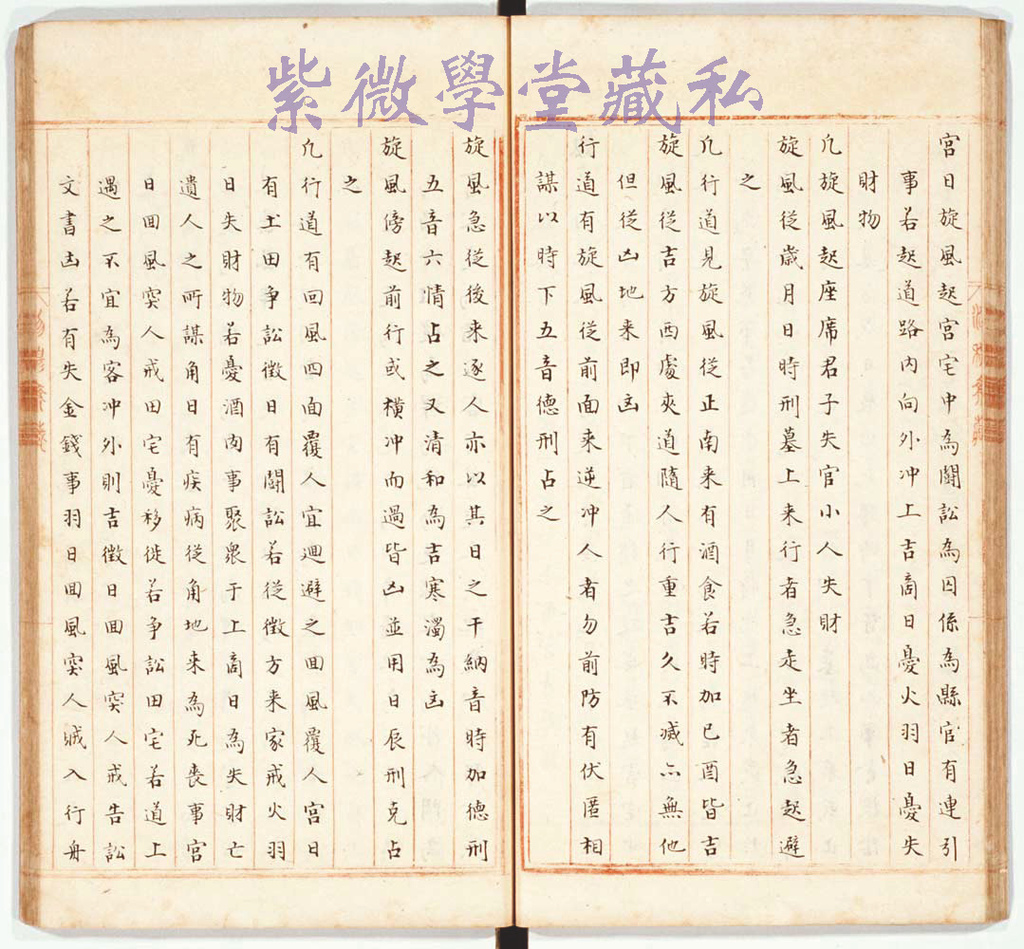 紫微學堂藏私
宮日旋風起宮宅中為鬪訟為囚係為縣官有連引
事若起道路內向外冲上吉商日憂火羽日憂失
財物
凢旋風起座席君子失官小人失財
旋風從歲月日時刑墓上来行者急走坐者急起避
之
凢行道見旋風從正南来有酒食若時加巳酉皆吉
旋風從吉方西處夾道隨人行重吉久不滅亦無他
但從凶地来即凶
行道有旋風從前面来逆冲人者勿前防有伏匿相
謀以時下五音德刑占之
旋風急從後来逐人亦以其日之干納音時加德刑
五音六情占之又清和為吉寒濁為凶
旋風傍起前行或横冲而過皆凶並用日辰刑克占
之
凢行道有回風四面覆人宜廻避之囬風覆人宮日
有土田爭訟徵日有鬪訟若從徵方来家戒火羽
日失財物若憂酒肉事聚衆于上商日為失財亡
遺人之所謀角日有疾病從角地来為死喪事宮
日囬風突人戒田宅憂移徙若爭訟田宅若道上
遇之不宜為客冲外則吉徵日囬風突人戒告訟
文書凶若有失金錢事羽日囬風突人賊入行舟